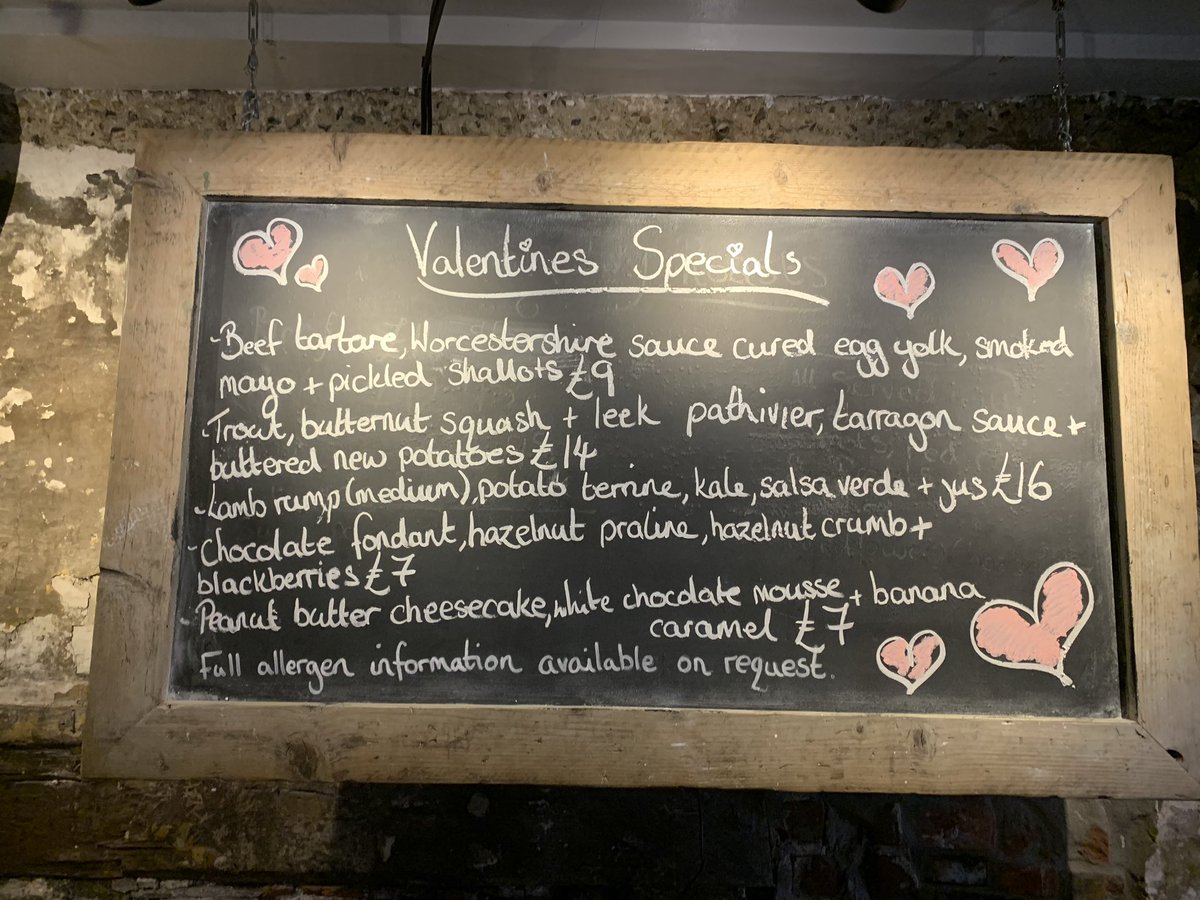 Valentines Specials
-Beef tartare, Worcestershire sauce cured egg yolk, smoked
mayo + pickled shallots £9
-Trout, butternut squash + leek pathivier, tarragon sauce +
buttered new potatoes £14
-Lamb rump (medium), potato terrine, kale, salsa verde + jus £16
-Chocolate fondant, hazelnut praline, hazelnut crumb +
blackberries £7
-Peanut butter cheesecake, white chocolate mousse + banana
caramel £7
Full allergen information available on request.